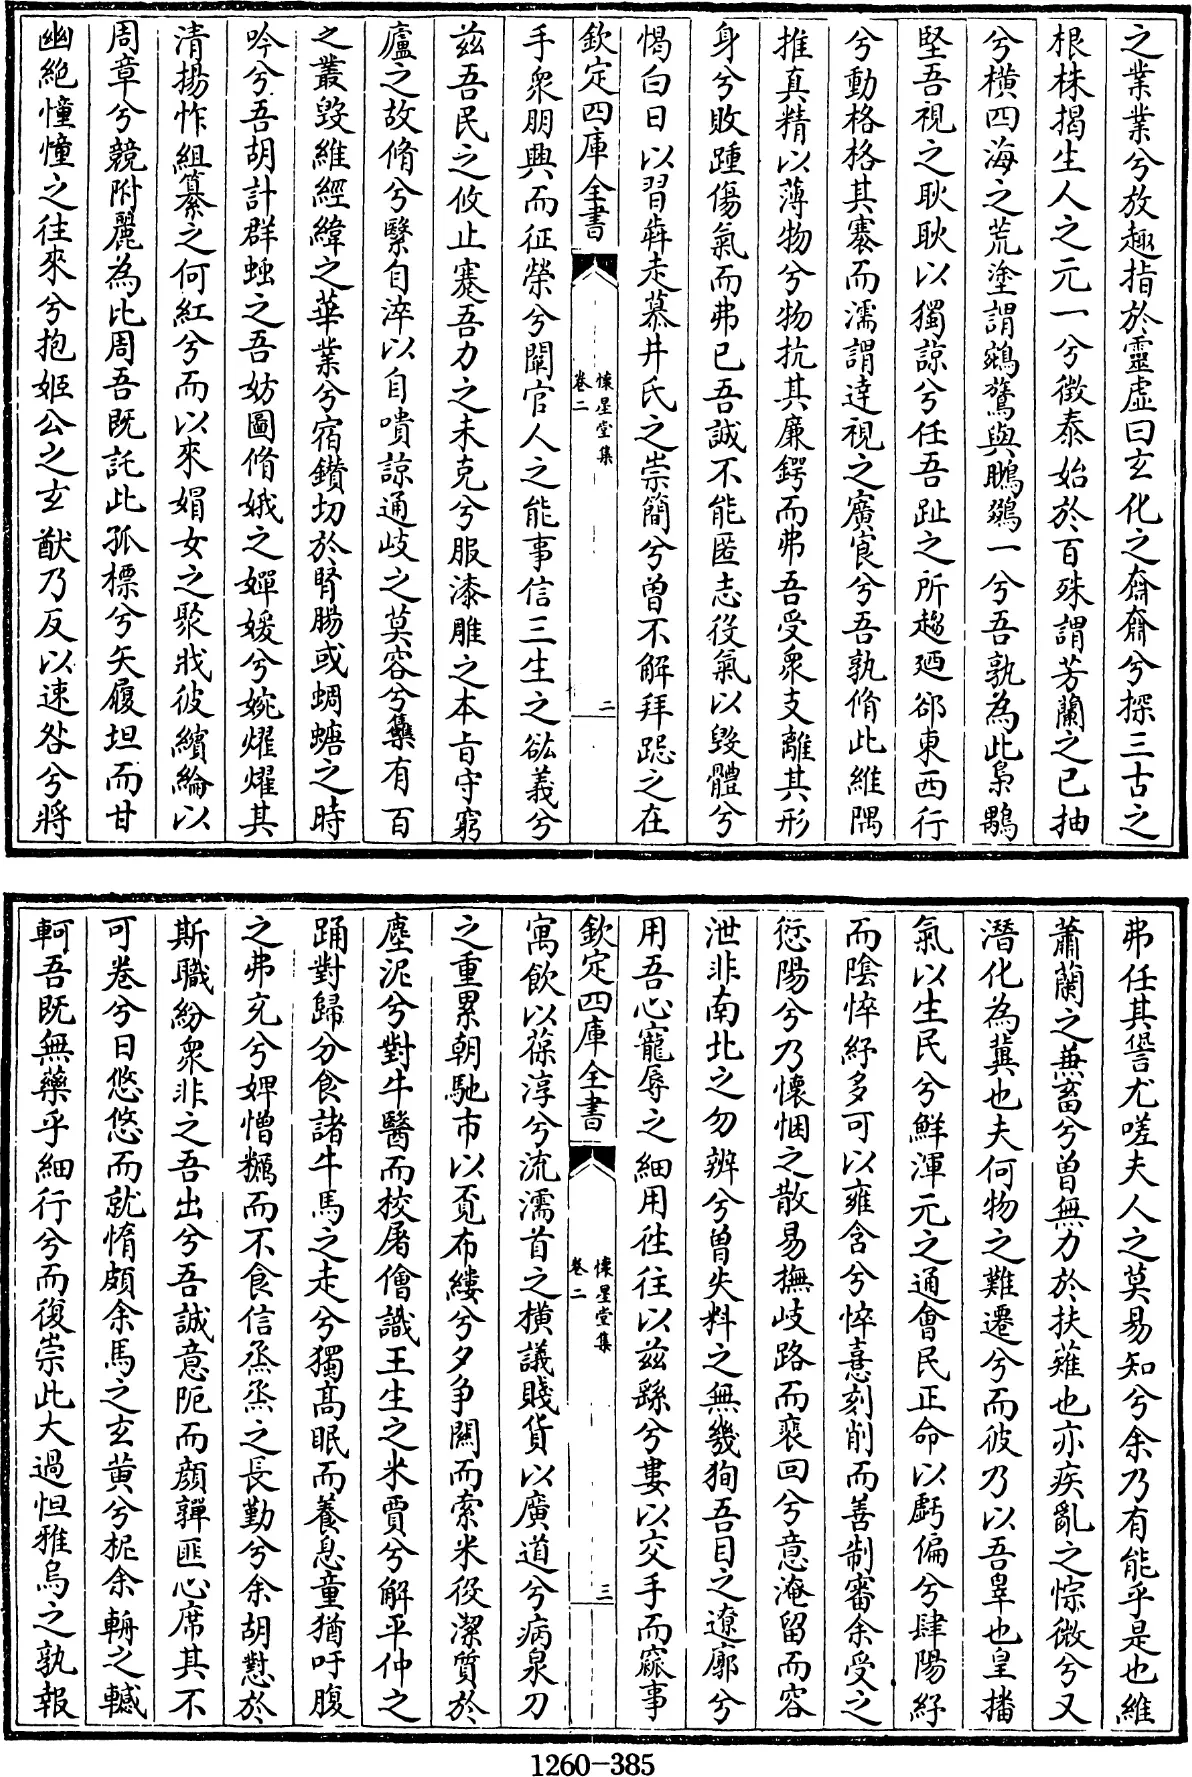 之業業兮放趣指於靈虛曰玄化之齋齋兮探三古之
根株揭生人之元一兮徴泰始於百殊謂芳蘭之已抽
兮橫四海之荒塗謂鵷鶵與鵬鷃一兮吾孰為此梟鶚
堅吾視之耿耿以獨諒兮任吾趾之所趨廼郤東西行
兮動格格其褰而濡謂達視之廣㝗兮吾孰脩此維隅
推真精以薄物兮物抗其廉鍔而弗吾受衆支離其形
身兮敗踵傷氣而弗已吾誠不能匿志役氣以毀體兮
惕白日以習犇走慕井氏之崇簡兮曾不解拜跽之在
欽定四庫全書
懷星堂集
卷二
二
手衆朋興而征榮兮闡官人之能事信三生之欱義兮
兹吾民之攸止蹇吾力之未克兮服漆雕之本旨守窮
廬之故脩兮繄自淬以自嘳諒通岐之莫容兮集有百
之叢毀維經緯之華業兮宿鑚切於腎腸或蜩螗之時
吟兮吾胡計群蚳之吾妨圖脩娥之嬋媛兮婉燿燿其
清揚怍組纂之何紅兮而以來娼女之聚戕彼繽綸以
周章兮競附麗為比周吾既託此孤標兮矢履坦而甘
幽絶憧憧之往來兮抱姬公之玄猷乃反以速咎兮將
弗任其譽尤嗟夫人之莫易知兮余乃有能乎是也維
蕭蘭之蕪畜兮曾無力於扶薙也亦疾亂之悰微兮又
潛化為冀也夫何物之難遷兮而彼乃以吾辠也皇播
氣以生民兮鮮渾元之通會民正命以虧偏兮肆陽紓
而陰悴紓多可以雍含兮悴憙刻削而善制審余受之
愆陽兮乃懷悃之散易撫岐路而裵回兮意淹留而容
泄非南北之勿辨兮曾失料之無幾狥吾目之遼廓兮
用吾心寵辱之細用徃往以兹繇兮婁以交手而窳事
欽定四庫全書
懷星堂集
卷二
三
寓飲以葆淳兮流濡首之橫議賤貨以廣道兮病泉刀
之重累朝馳市以覔布縷兮夕争闗而索米役潔質於
塵泥兮對牛醫而校屠儈識王生之米賈兮解平仲之
踊對歸分食諸牛馬之走兮獨髙眠而養息童猶吁腹
之弗充兮婢憎糲而不食信烝烝之長勤兮余胡懟於
斯職紛衆非之吾出兮吾誠意阨而顔嚲匪心席其不
可卷兮日悠悠而就惰頗余馬之玄黄兮柅余輈之轗
軻吾既無藥乎細行兮而復崇此大過怛雅烏之孰報
1260-385